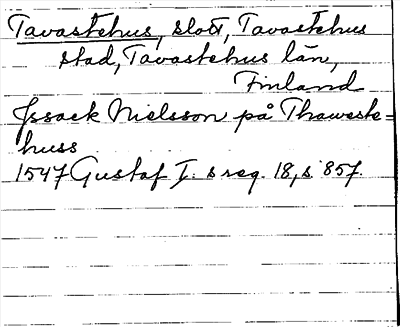 Tavastehus, slott, Tavastehus
stad, Tavastehus län,
Finland
Jssack Nielsson på Thaweste=
huss
1547 Gustaf I. s reg. 18, s 857.